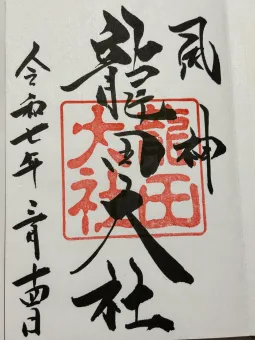 風神
龍田大社
龍田大社
令和七年二月十四日